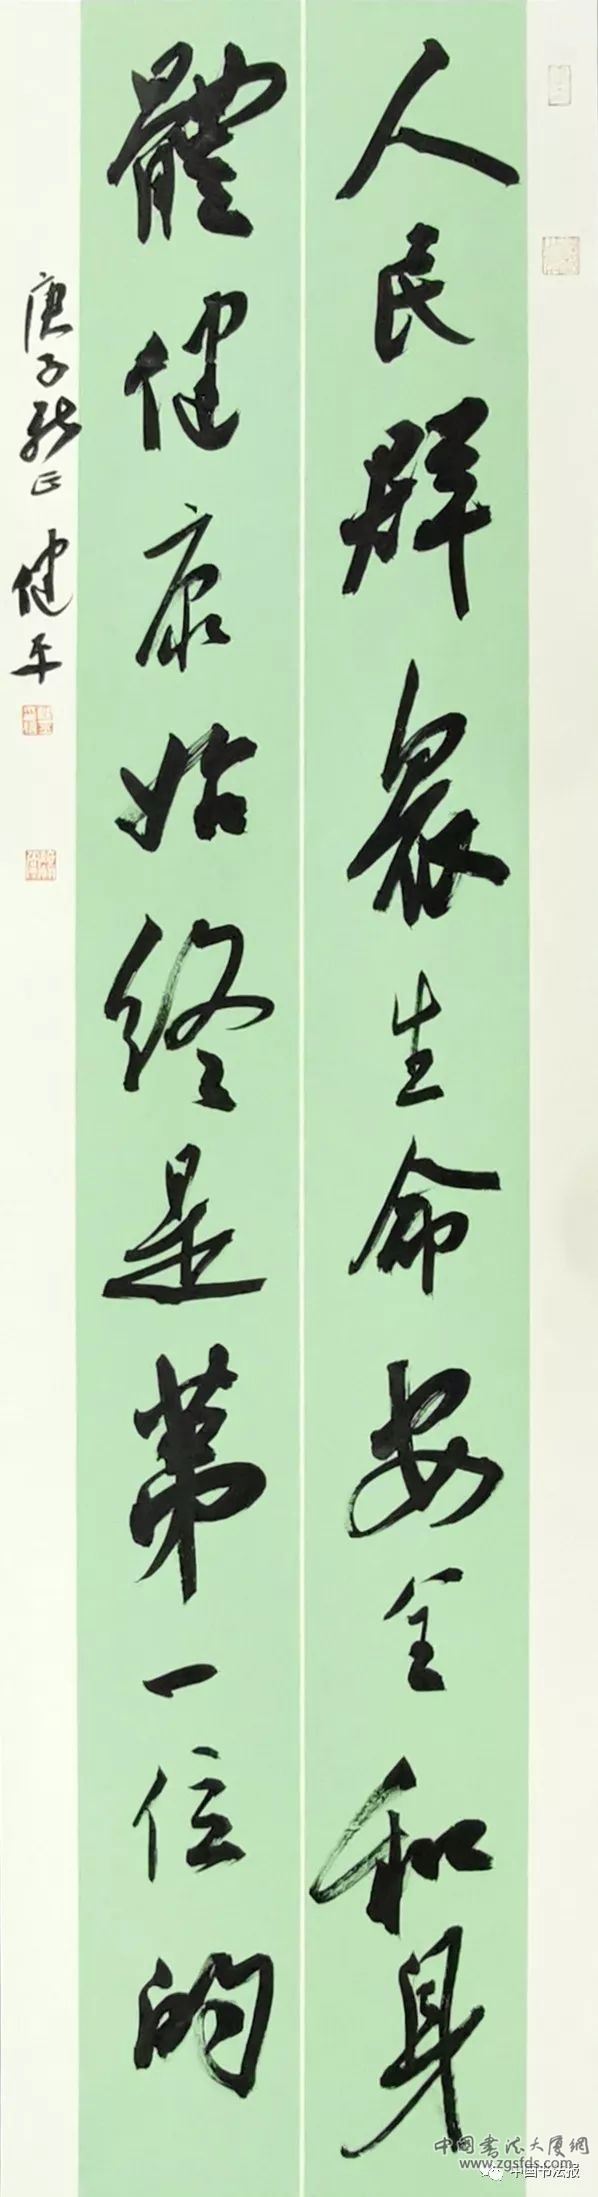 人民群衆生命安全和身
體健康始終是第一位的
庚子新正 健平
中国书法大厦網
www.zgsfds.com
中国书法报